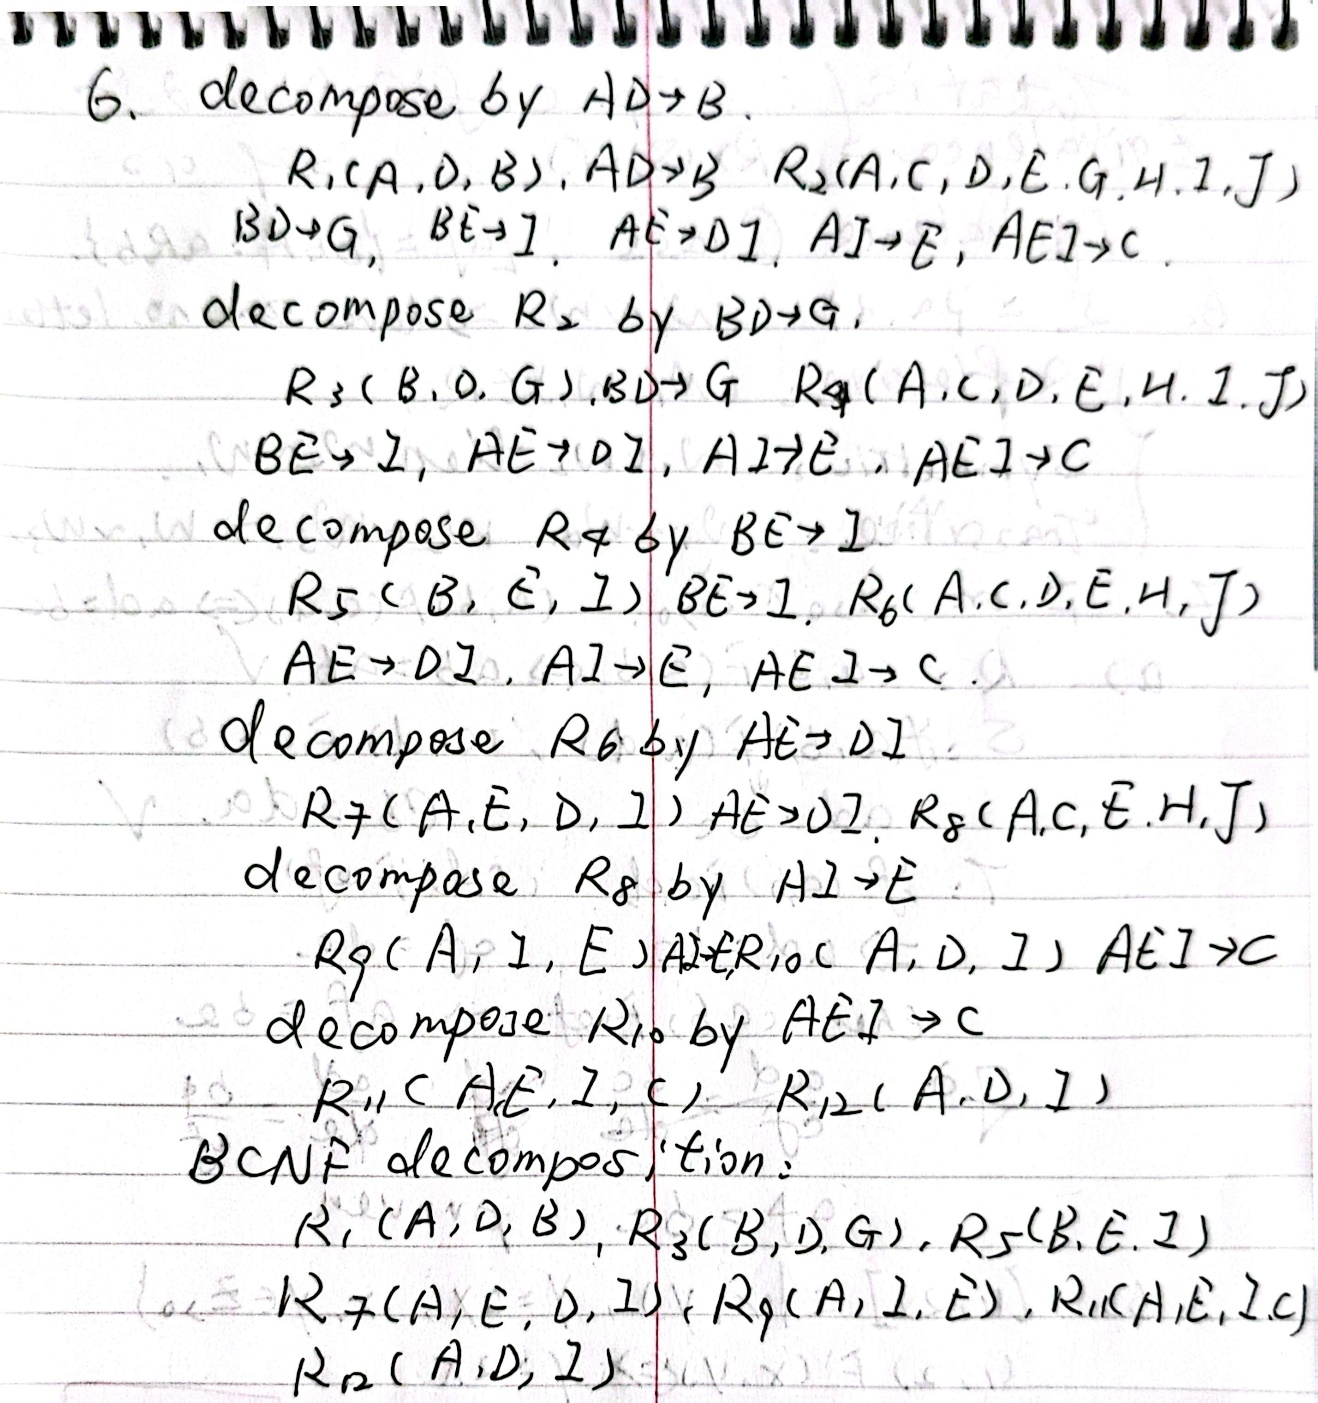 6. decompose by AD→B.
R1(A,D,B), AD→B R2(A,C,D,E,G,H,I,J)
BD→G, BE→I, AE→DI, AI→E, AEI→C.
decompose R2 by BD→G.
R3(B,D,G), BD→G R4(A,C,D,E,H,I,J)
BE→I, AE→DI, AI→E, AEI→C
decompose R4 by BE→I
R5(B,E,I) BE→I. R6(A,C,D,E,H,J)
AE→DI, AI→E, AEI→C.
decompose R6 by AE→DI
R7(A,E,D,I) AE→DI. R8(A,C,E,H,J)
decompose R8 by AI→E
R9(A,I,E) AI→E, R10(A,D,I) AEI→C
decompose R10 by AEI→C
R11(AE,I,C), R12(A,D,I)
BCNF decomposition:
R1(A,D,B), R3(B,D,G), R5(B,E,I)
R7(A,E,D,I), R9(A,I,E), R11(A,E,I,C)
R12(A,D,I)